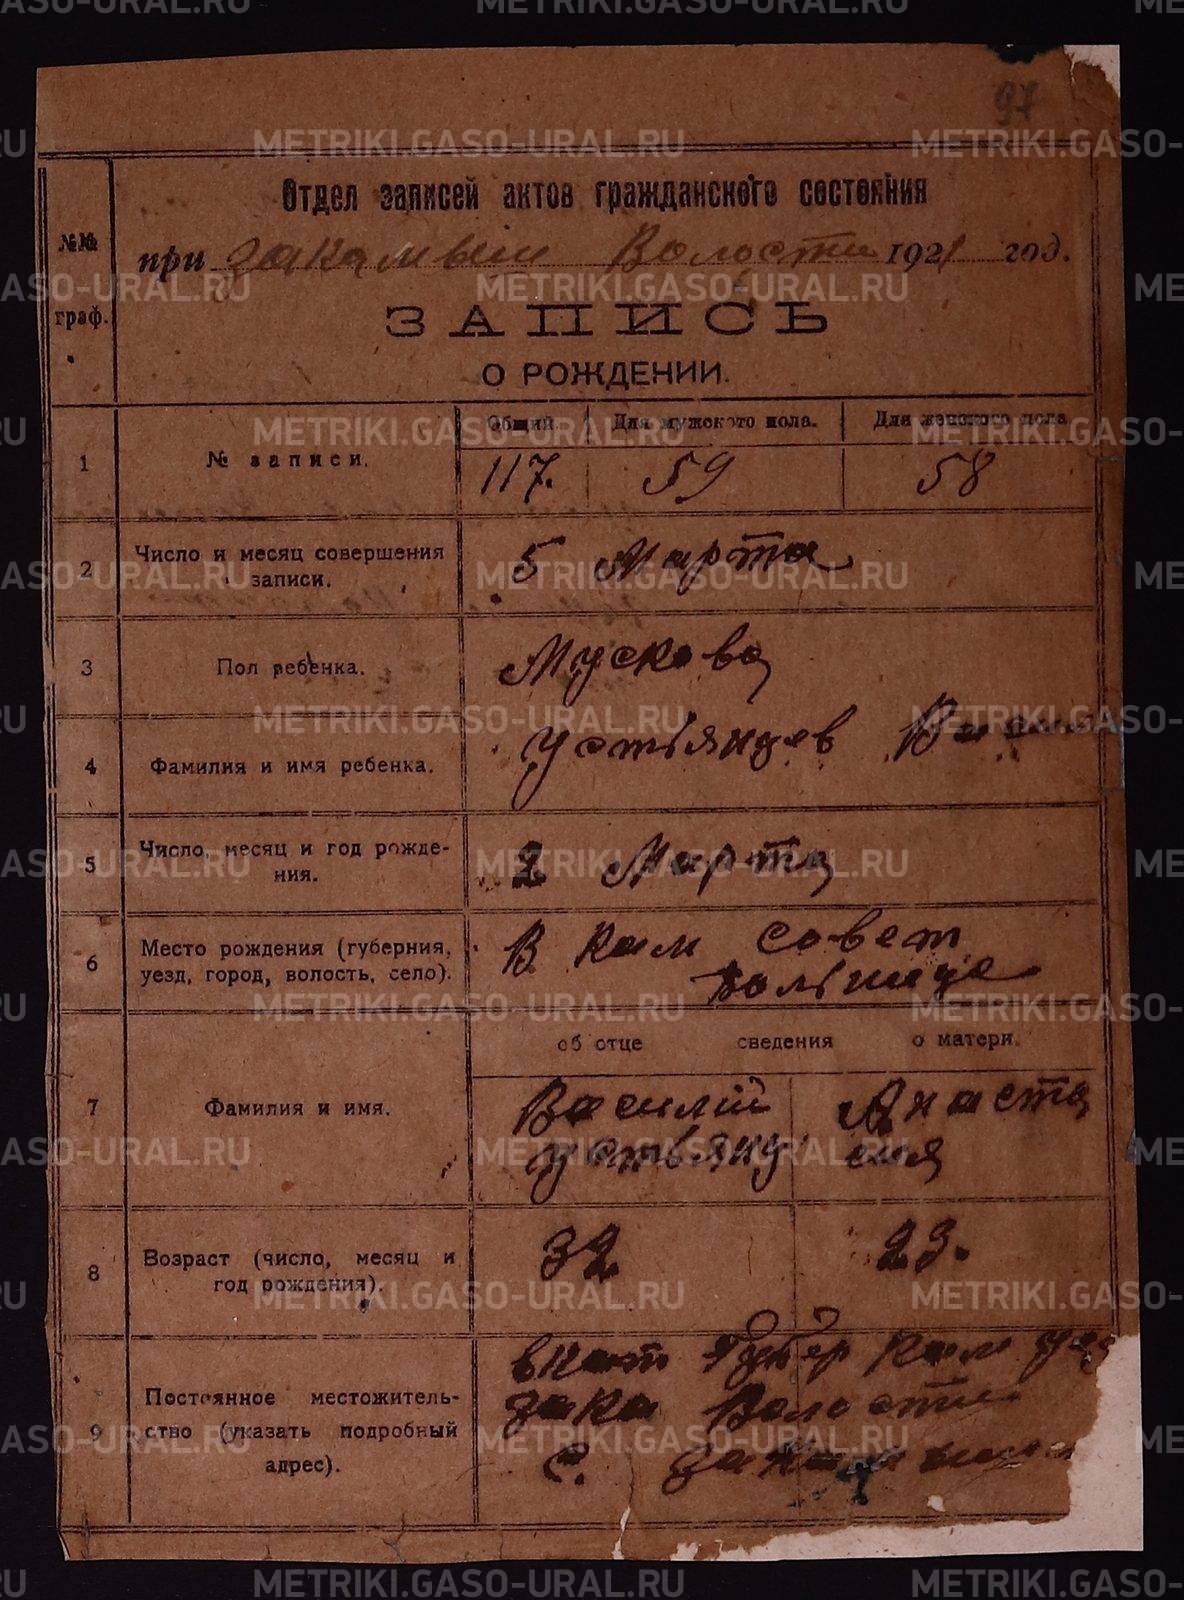 97
Отдел записей актов гражданского состояния
при Закамыш Волости 1921 год.
№№ граф.
ЗАПИСЬ
О РОЖДЕНИИ.
Общий. Для мужского пола. Для женского пола
1 № записи. 117. 59 58
2 Число и месяц совершения
записи. 5 Марта
3 Пол ребенка. Мускова
4 Фамилия и имя ребенка. Устьянцев
5 Число, месяц и год рожде-
ния. 2 Марта
6 Место рождения (губерния,
уезд, город, волость, село). В Кам совет
Больнице
об отце сведения о матери.
7 Фамилия и имя. Василий Анаста
Устьянц сия
8 Возраст (число, месяц и
год рождения). 32 23.
9 Постоянное местожитель-
ство (указать подробный
адрес). в Кат Губер Кам
Зака Волости
С.
METRIKI.GASO-URAL.RU